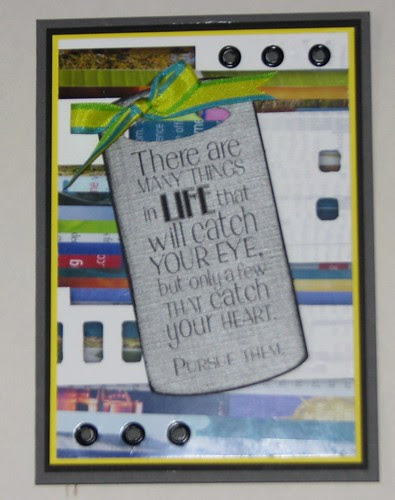 There are
MANY THINGS
in LIFE that
will catch
YOUR EYE,
but only a few
THAT catch
your HEART.
PURSUE THEM.